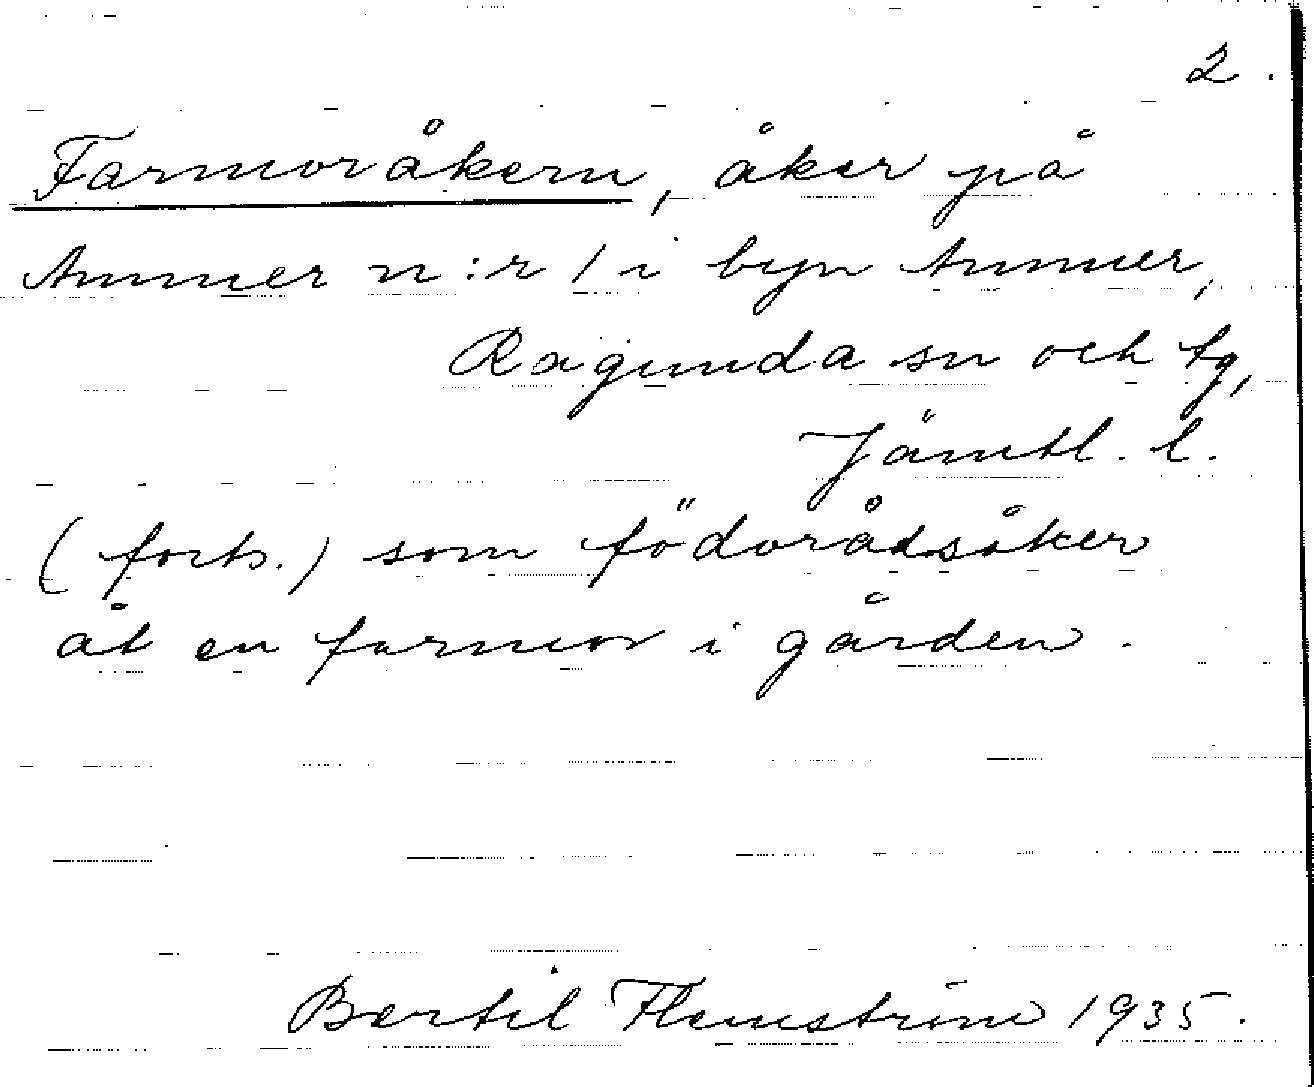 2.
Farmoråkern, åker på
Ammer n:r 1 i byn Ammer,
Ragunda sn och tg,
Jämtl. l.
(forts.) som födorådsåker
åt en farmor i gården.
Bertil Flemström 1935.